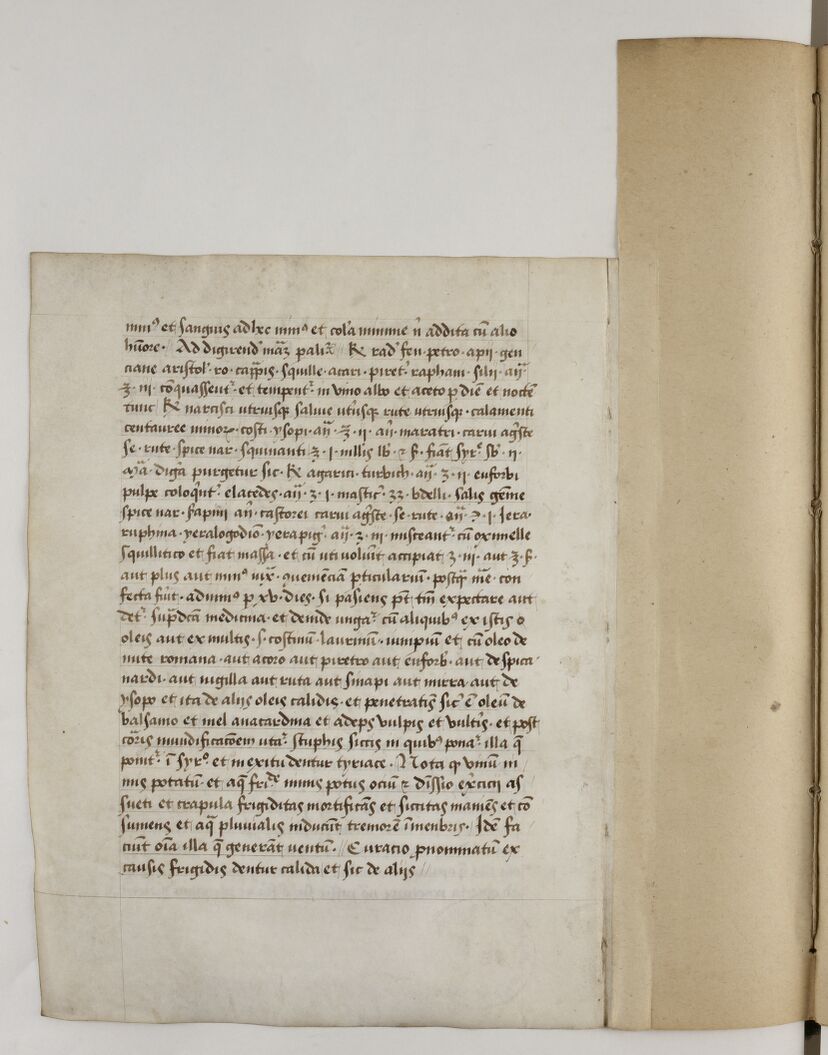 min⁹ et sanguis ad hec min⁹ et cola minime n̄ addita cū alio
hūore · Ad digirend' mā₃ paliz̄ R rad' feni · petro · apii · gen
ciane aristol' · ro · capp̄is · squille · acari · piret' · raphani · silii · aīī ·
ʒ · iii · cōquassent᷑ · et tempent᷑ · in vino albo et aceto p̱ diē et noctē
tunc R narcisci utriusqꝫ salvie ut̓usqꝫ rute utriusqꝫ · calamenti
centauree minorꝝ · costi · ysopi · aīī · ʒ · ii · aīī · maratri · carui ag̓ste
se · rute · spice nar · squinanti · ʒ · i · mllis lb' · ⁊ ß · fiat syr⁹ · sb' · ii ·
Mā · dig̓a purgetur sic · R agarici · turbich · aīī · ʒ · ii · euforbi
pulpe coloq̓nt᷑ · elacedes · aīī · ʒ · i · mastic᷑ · bdelli · salis gēme
spice nar · sapini aīī · castorei carui ag̓ste · se · rute · aīī · ℈ · i · Iera ·
ruphina · yeralogodiō · yerapig᷑ · aīī · ʒ · iii · misceant᷑ · cū oximelle
squillitico et fiat massa · et cū uti volūit accipiat ʒ · iii · aut ʒ · ß ·
aut plus aut min⁹ iux̄ · quemēciā p̱ticularium · postq̄ mē · con
fecta fūit · adunim⁹ p̱ xv · dies · si pasiens pt̄ tm̄ expectare aut
det᷑ · sup̄dcā medicina · et deinde ungat᷑ · cū aliquib⁹ ex istis o
oleis aut ex multis · s · costinū · laurinū · iunipiū et cū oleo de
nute romana · aut acoro aut piretro aut euforb' · aut de spica
nardi · aut nigilla aut ruta aut sinapi aut mirra · aut de
ysopo et ita de aliis oleis calidis · et penetratis̄ sic᷑ ē oleū de
balsamo et mel anacardina et adeps vulpis et vultis̄ · et post
cōris mundificacōem utat᷑ · stuphis siccis in quib⁹ ponat᷑ illa q̄
ponit᷑ · ī syr⁹ · et in exitu dentur tyriace · Nota qꝫ vinū ni
mis potatū · et aq̄ frida nimis potus ociū ⁊ dissio exercicii as
sueti et crapula frigiditas mortificās et siccitas maniēs et cō
sumens et aq̄ pluvialis inducūt tremorē ī menbris · Idē fa
ciūt oīa illa q̄ generāt ventū · Curacio p̱nominatū ex
causis frigidis dentur calida et sic de aliis